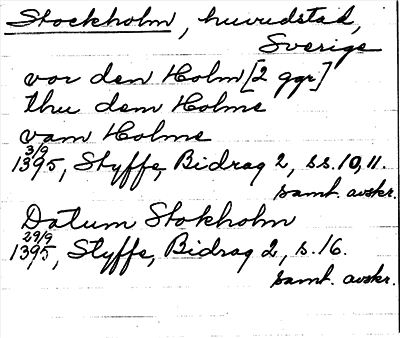 Stockholm, huvudstad,
Sverige
vor den Holm [2 ggr]
thu dem Holme
vam Holme
3/9
1395, Styffe, Bidrag 2, ss. 10, 11.
samt. avskr.
Datum Stokholm
29/9
1395, Styffe, Bidrag 2, s. 16.
samt. avskr.